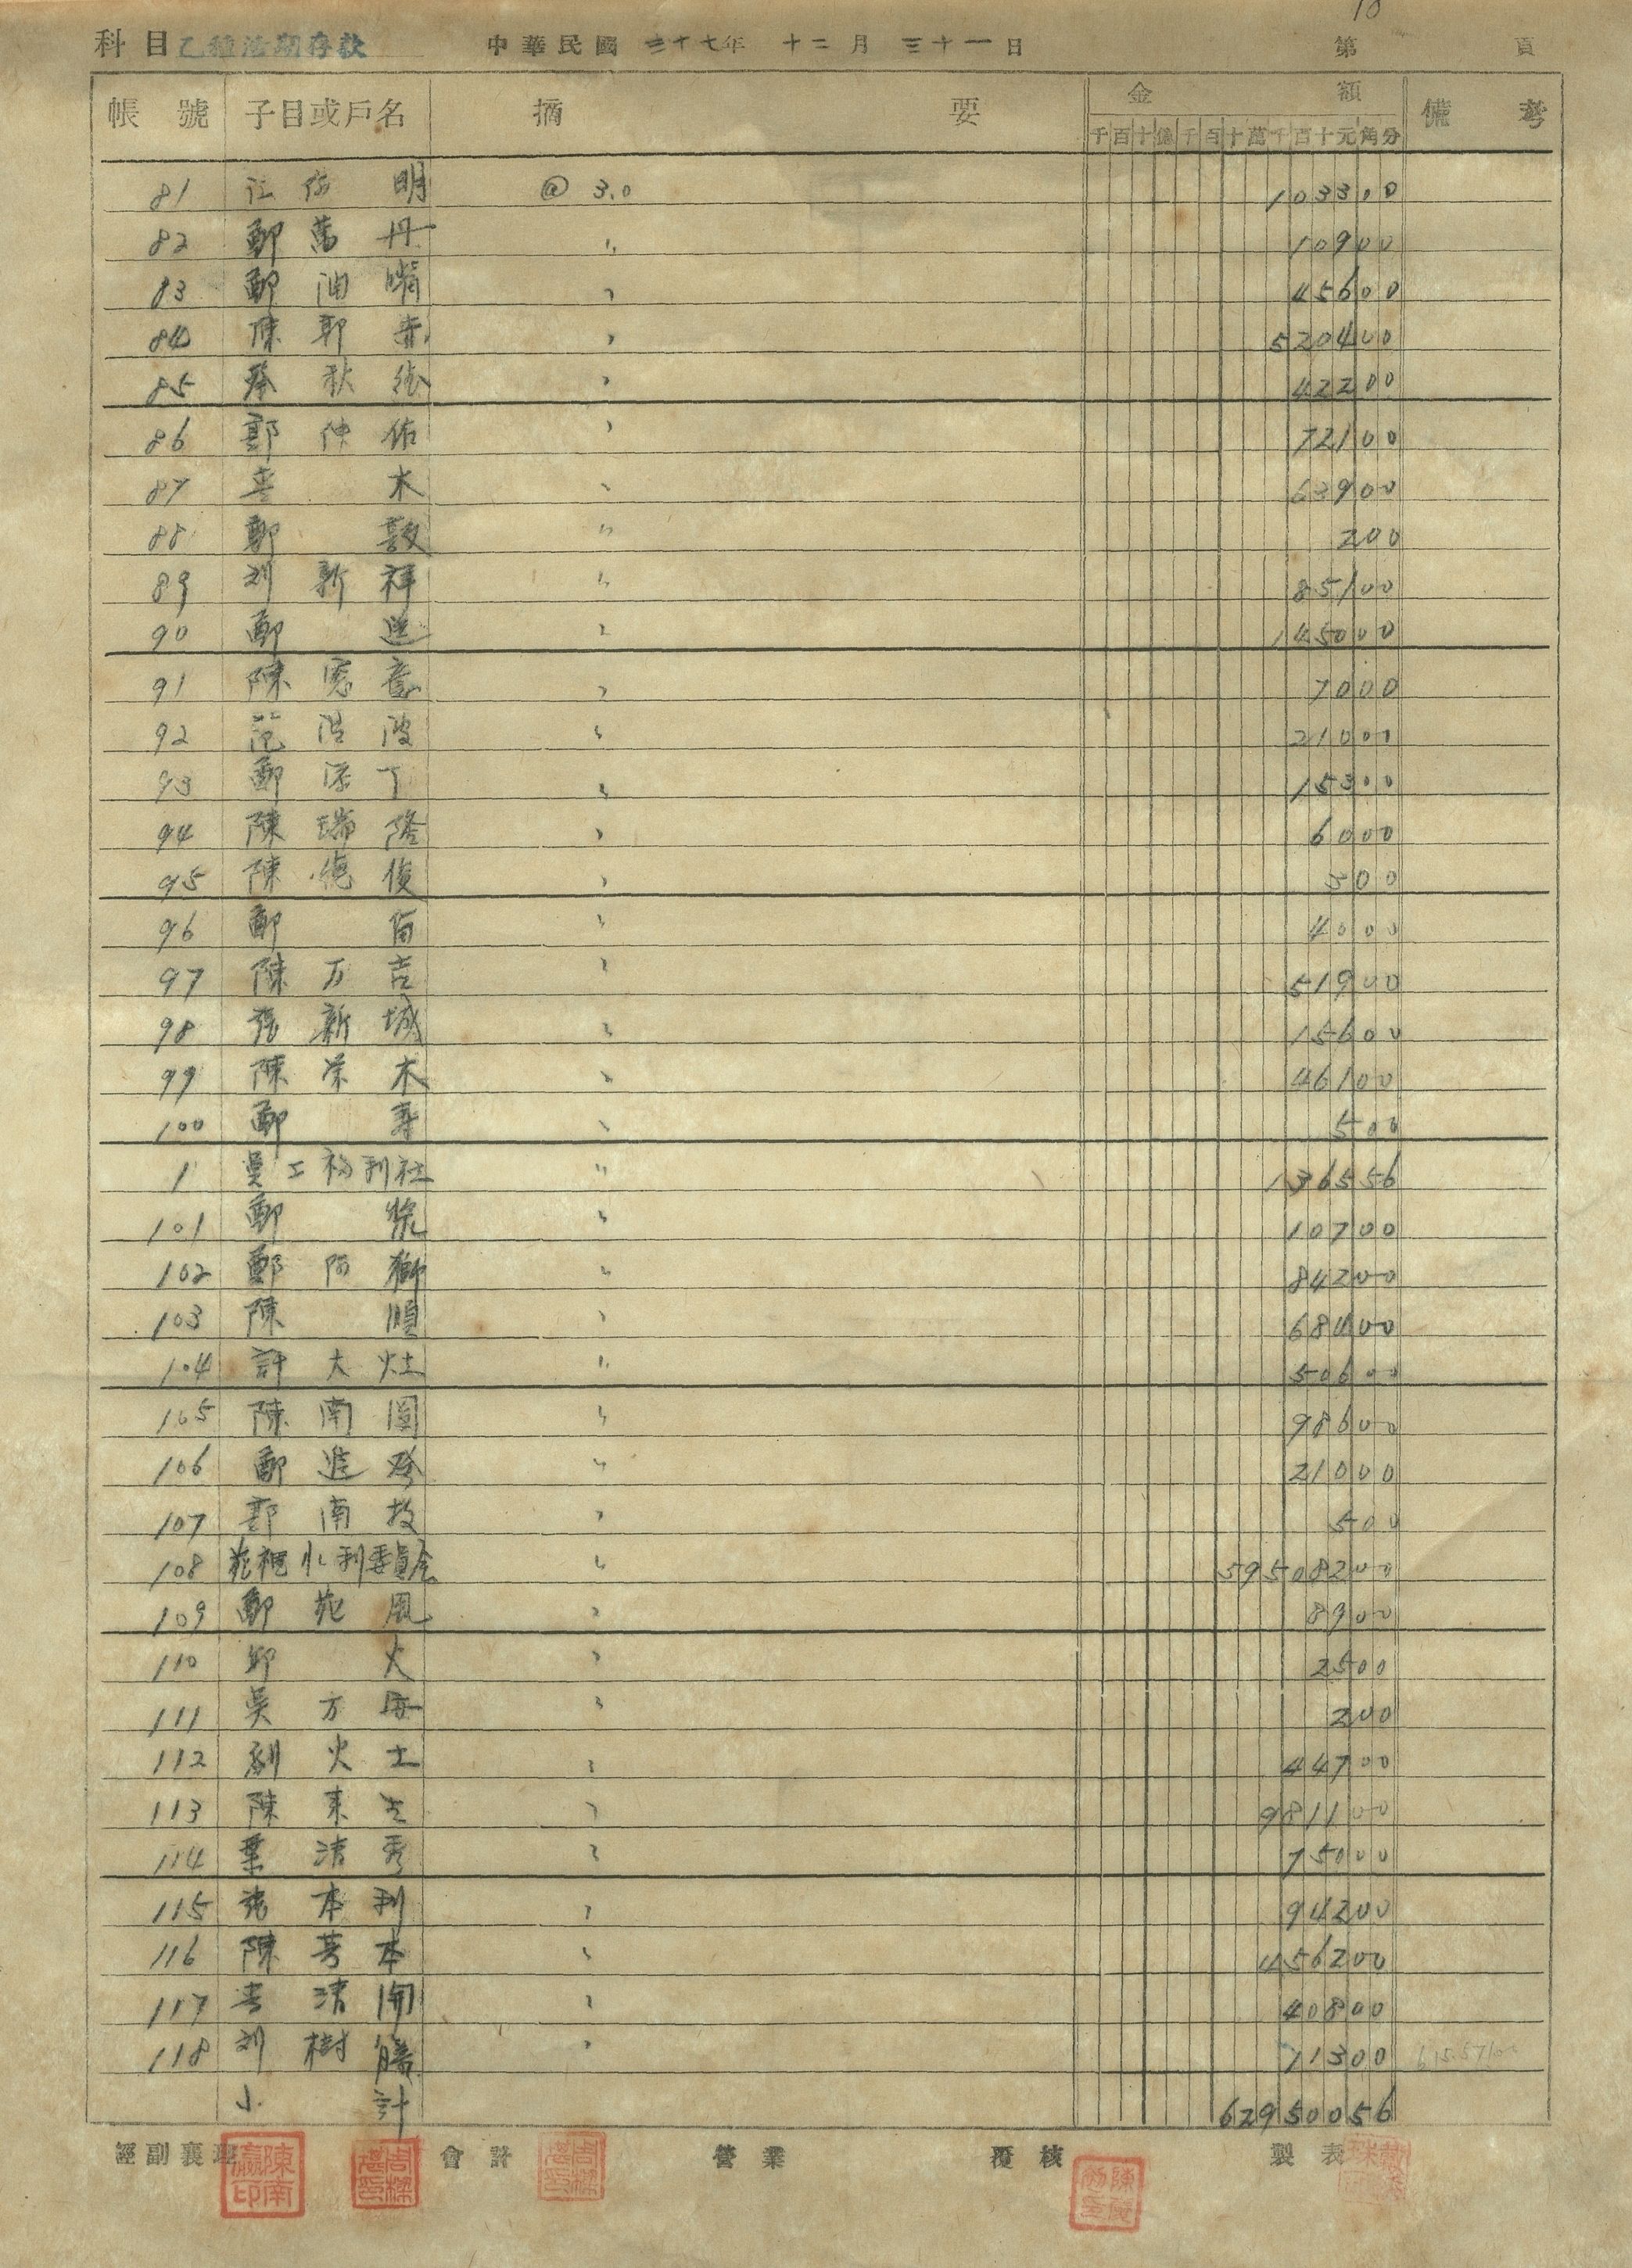 10
科目 乙種活期存款 中華民國 三十七年 十二月 三十一日 第 頁
帳號 子目或戶名 摘要 金額 備考
千百十億千百十萬千百十元角分
81 江 明 @ 3.0 103300
82 鄭萬丹 〃 10900
83 鄭 〃 45600
84 陳 〃 520400
85 秋 〃 42200
86 郭仲佑 〃 72100
87 木 〃 63900
88 鄭敦 〃 200
89 刘新祥 〃 85100
90 鄭送 〃 145000
91 陳憲意 〃 7000
92 范 波 〃 21000
93 鄭添丁 〃 15300
94 陳瑞隆 〃 6000
95 陳德俊 〃 500
96 鄭 〃 4000
97 陳万吉 〃 51900
98 張新城 〃 15600
99 陳荣木 〃 46100
100 鄭 〃 500
1 員工福利社 〃 136556
101 鄭 〃 10700
102 鄭阿獅 〃 84200
103 陳順 〃 68400
104 許大灶 〃 50600
105 陳南圓 〃 98600
106 鄭進發 〃 21000
107 郭南 〃 500
108 苑裡水利委員会 〃 59508200
109 鄭苑風 〃 8900
110 火 〃 2500
111 吳方 〃 200
112 劉火土 〃 44700
113 陳来 〃 981100
114 葉清秀 〃 75000
115 張本利 〃 94200
116 陳芳本 〃 456200
117 清 〃 40800
118 刘樹勝 〃 71300
小計 62950056
經副襄理 會計 營業 覆核 製表